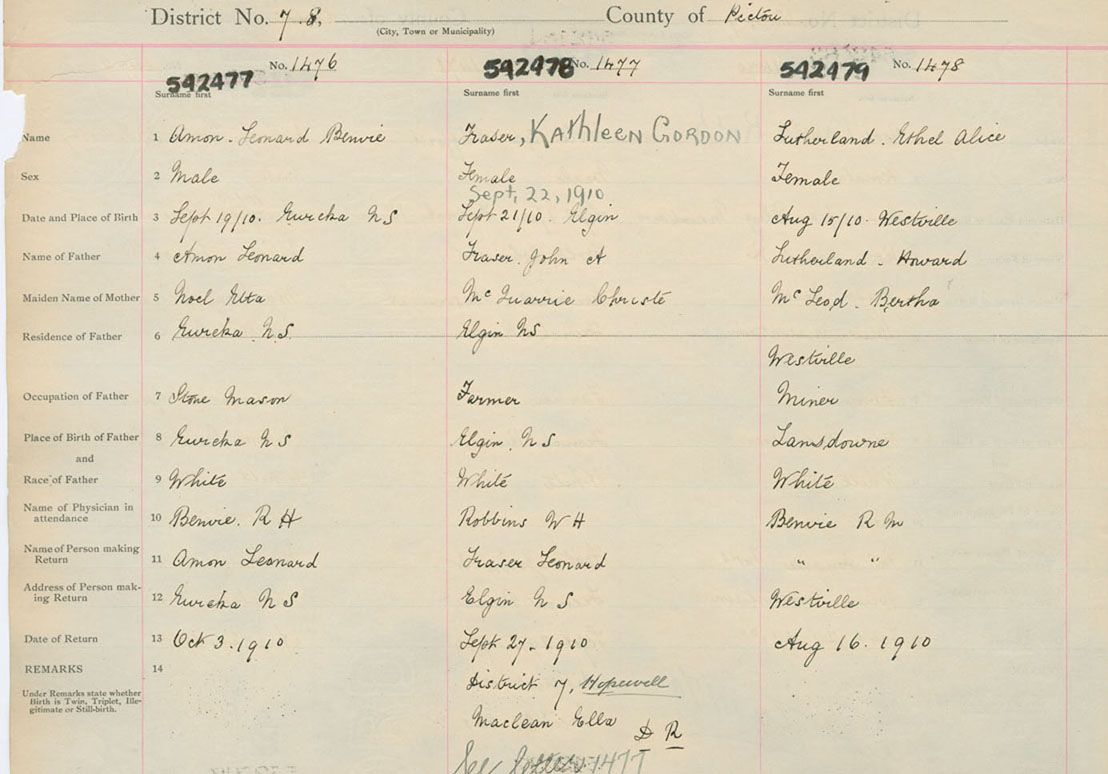 District No. 7.8, County of Pictou
(City, Town or Municipality)
542477 No. 1476 542478 No. 1477 542479 No. 1478
Surname first Surname first Surname first
Name 1 Amon. Leonard Benvie Fraser, KAthlEEN GORDON Sutherland. Ethel Alice
Sex 2 Male Female Female
Sept, 22, 1910
Date and Place of Birth 3 Sept 19/10. Eureka N S Sept 21/10. Elgin Aug 15/10 Westville
Name of Father 4 Amon Leonard Fraser. John A Sutherland - Howard
Maiden Name of Mother 5 Noel Etta Mc Quarrie Christe Mc Leod. Bertha
Residence of Father 6 Eureka N.S Elgin NS
Westville
Occupation of Father 7 Stone Mason Farmer Miner
Place of Birth of Father 8 Eureka N S Elgin N S Lansdowne
and
Race of Father 9 White White White
Name of Physician in
attendance 10 Benvie. R H Robbins W H Benvie R M
Name of Person making
Return 11 Amon Leonard Fraser Leonard " "
Address of Person mak-
ing Return 12 Eureka N S Elgin N S Westville
Date of Return 13 Oct 3. 1910 Sept 27. 1910 Aug 16. 1910
REMARKS 14
District 7, Hopewell
Under Remarks state whether
Birth is Twin, Triplet, Ille-
gitimate or Still-birth.
Maclean Ella D R
1477